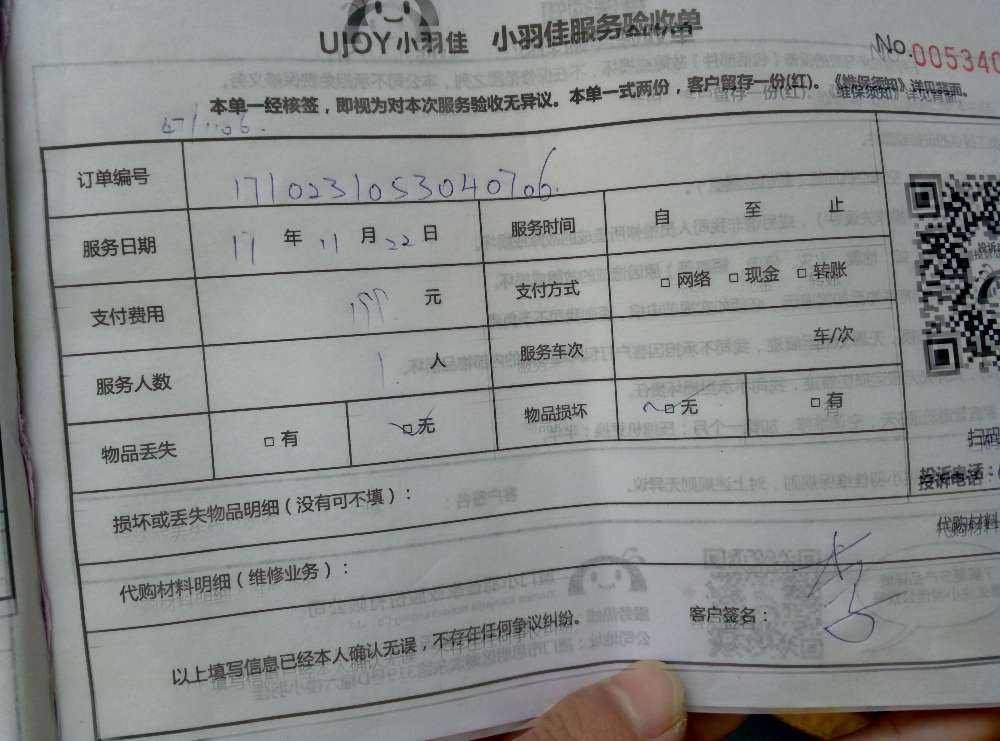 UJOY小羽佳 小羽佳服务验收单
No.005340
本单一经核签，即视为对本次服务验收无异议。本单一式两份，客户留存一份(红)。《维保须知》详见背面。
订单编号 1710231053040706
服务日期 17 年 11 月 22 日 服务时间 自 至 止
支付费用 199 元 支付方式 □ 网络 □ 现金 □ 转账
服务人数 1 人 服务车次 车/次
物品丢失 □ 有 □ 无 物品损坏 □ 无 □ 有
扫码
投诉电话：
损坏或丢失物品明细（没有可不填）：
代购材料
代购材料明细（维修业务）：
客户签名：
以上填写信息已经本人确认无误，不存在任何争议纠纷。